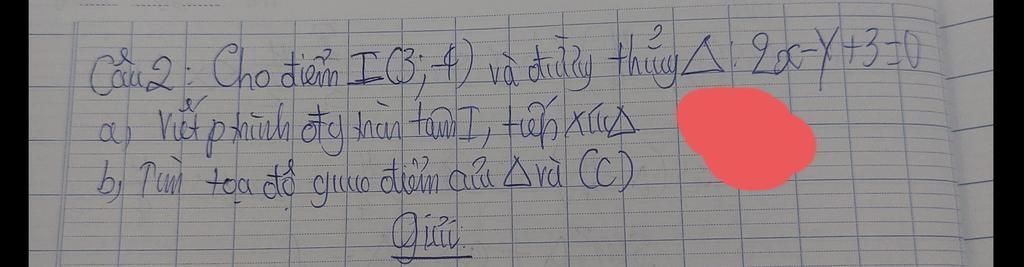 Câu 2: Cho điểm I(3; -4) và đường thẳng Δ: 2x - y + 3 = 0
a) Viết p trình đtg tròn tâm I, tiếp xúc Δ
b, Tìm tọa độ giao điểm của Δ và (C)
Giải